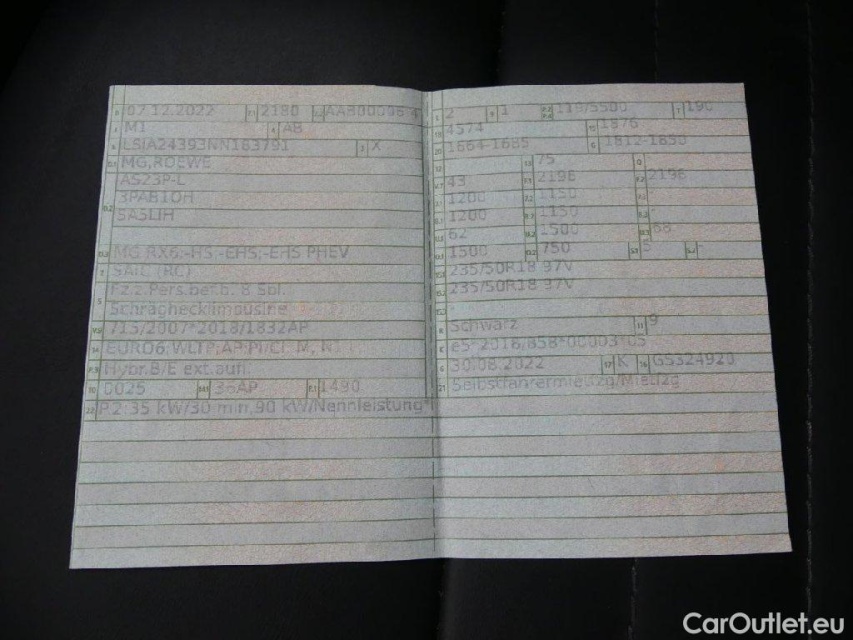 07.12.2022 2180
M1 AB
LSJA24393NN183791 X
MG,ROEWE
AS23P-L
3PAB1OH
SA5LIH
MG RX6;-HS;-EHS;-EHS PHEV
SAIC (RC)
Fz.z.Pers.bef.b. 8 Spl.
Schräghecklimousine
715/2007*2018/1832AP
EURO6;WLTP;AP:PI/CI; M, N1 I
Hybr.B/E ext.aufl.
0025 36AP 1490
P.2:35 kW/30 min,90 kW/Nennleistung*
2 1 119/5500 190
4574 1876
1664-1685 1812-1830
75
43 2196 2196
1200 1150
1200 1150
62 1500 66
1500 750 5 -
235/50R18 97V
235/50R18 97V
Schwarz 9
e5*2018/858*00003*05
30.08.2022 K GS324920
Selbstfahrermietzg/Mietzg
CarOutlet.eu